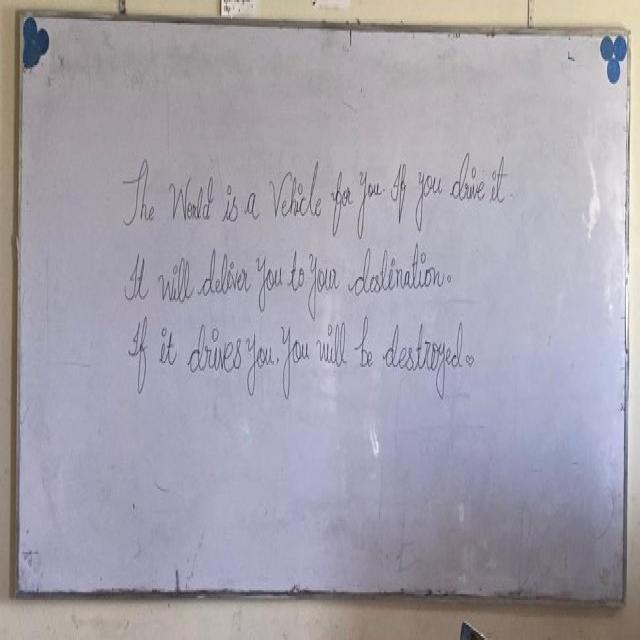 The World is a Vehicle for You. If you drive it.
It will deliver you to your destination.
If it drives you, You will be destroyed.